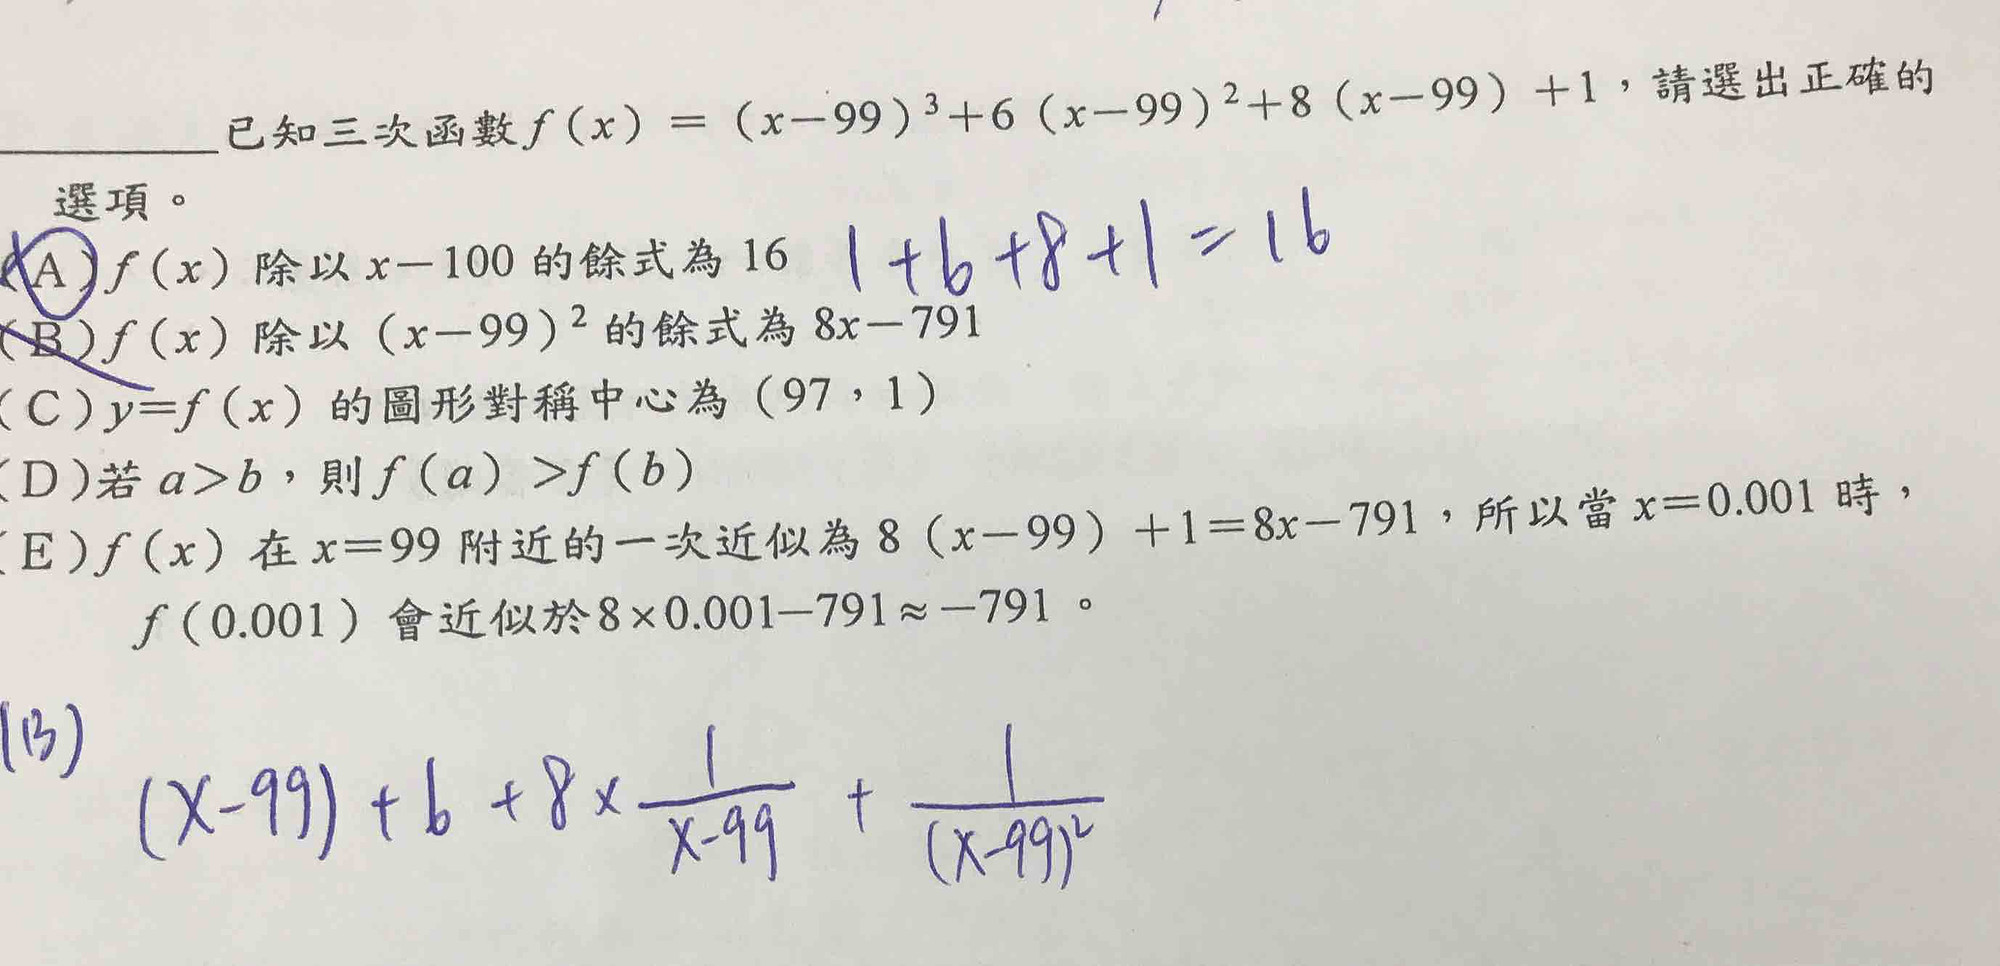 已知三次函數f(x)=(x-99)³+6(x-99)²+8(x-99)+1，請選出正確的
選項。
(A)f(x)除以x-100的餘式為16 1+6+8+1=16
(B)f(x)除以(x-99)²的餘式為8x-791
(C)y=f(x)的圖形對稱中心為(97，1)
(D)若a>b，則f(a)>f(b)
(E)f(x)在x=99附近的一次近似為8(x-99)+1=8x-791，所以當x=0.001時，
f(0.001)會近似於8×0.001-791≈-791。
(B)
(x-99)+6+8×\frac{1}{x-99}+\frac{1}{(x-99)²}